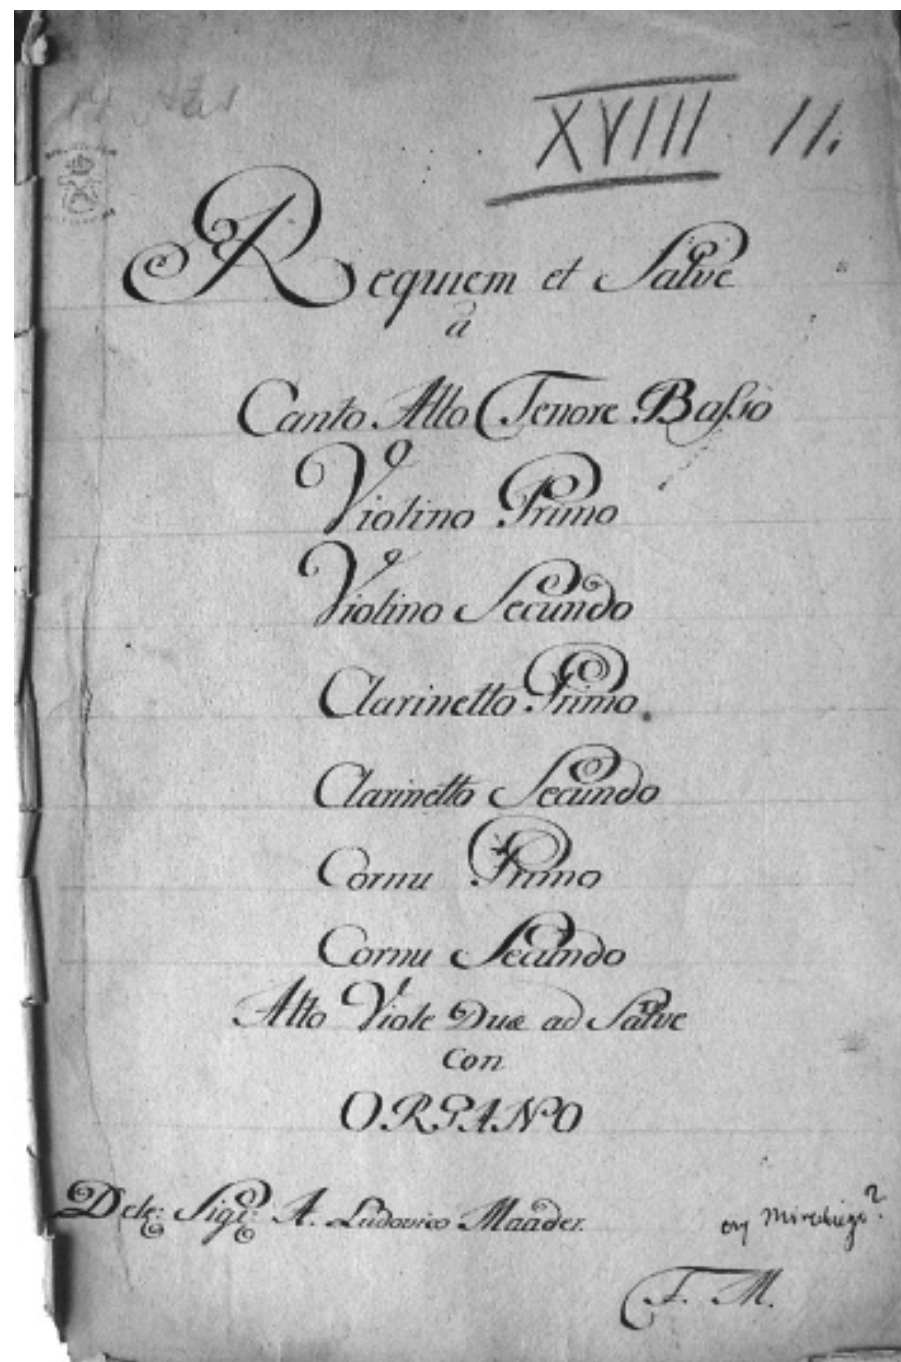 XVIII 11.
Requiem et Salve
a
Canto Alto Tenore Basso
Violino Primo
Violino Secundo
Clarinetto Primo.
Clarinetto Secundo
Cornu Primo
Cornu Secundo
Alto Viole Duæ ad Salve
con
ORGANO
Dele: Sigre: A. Ludovico Maader.
T. M.